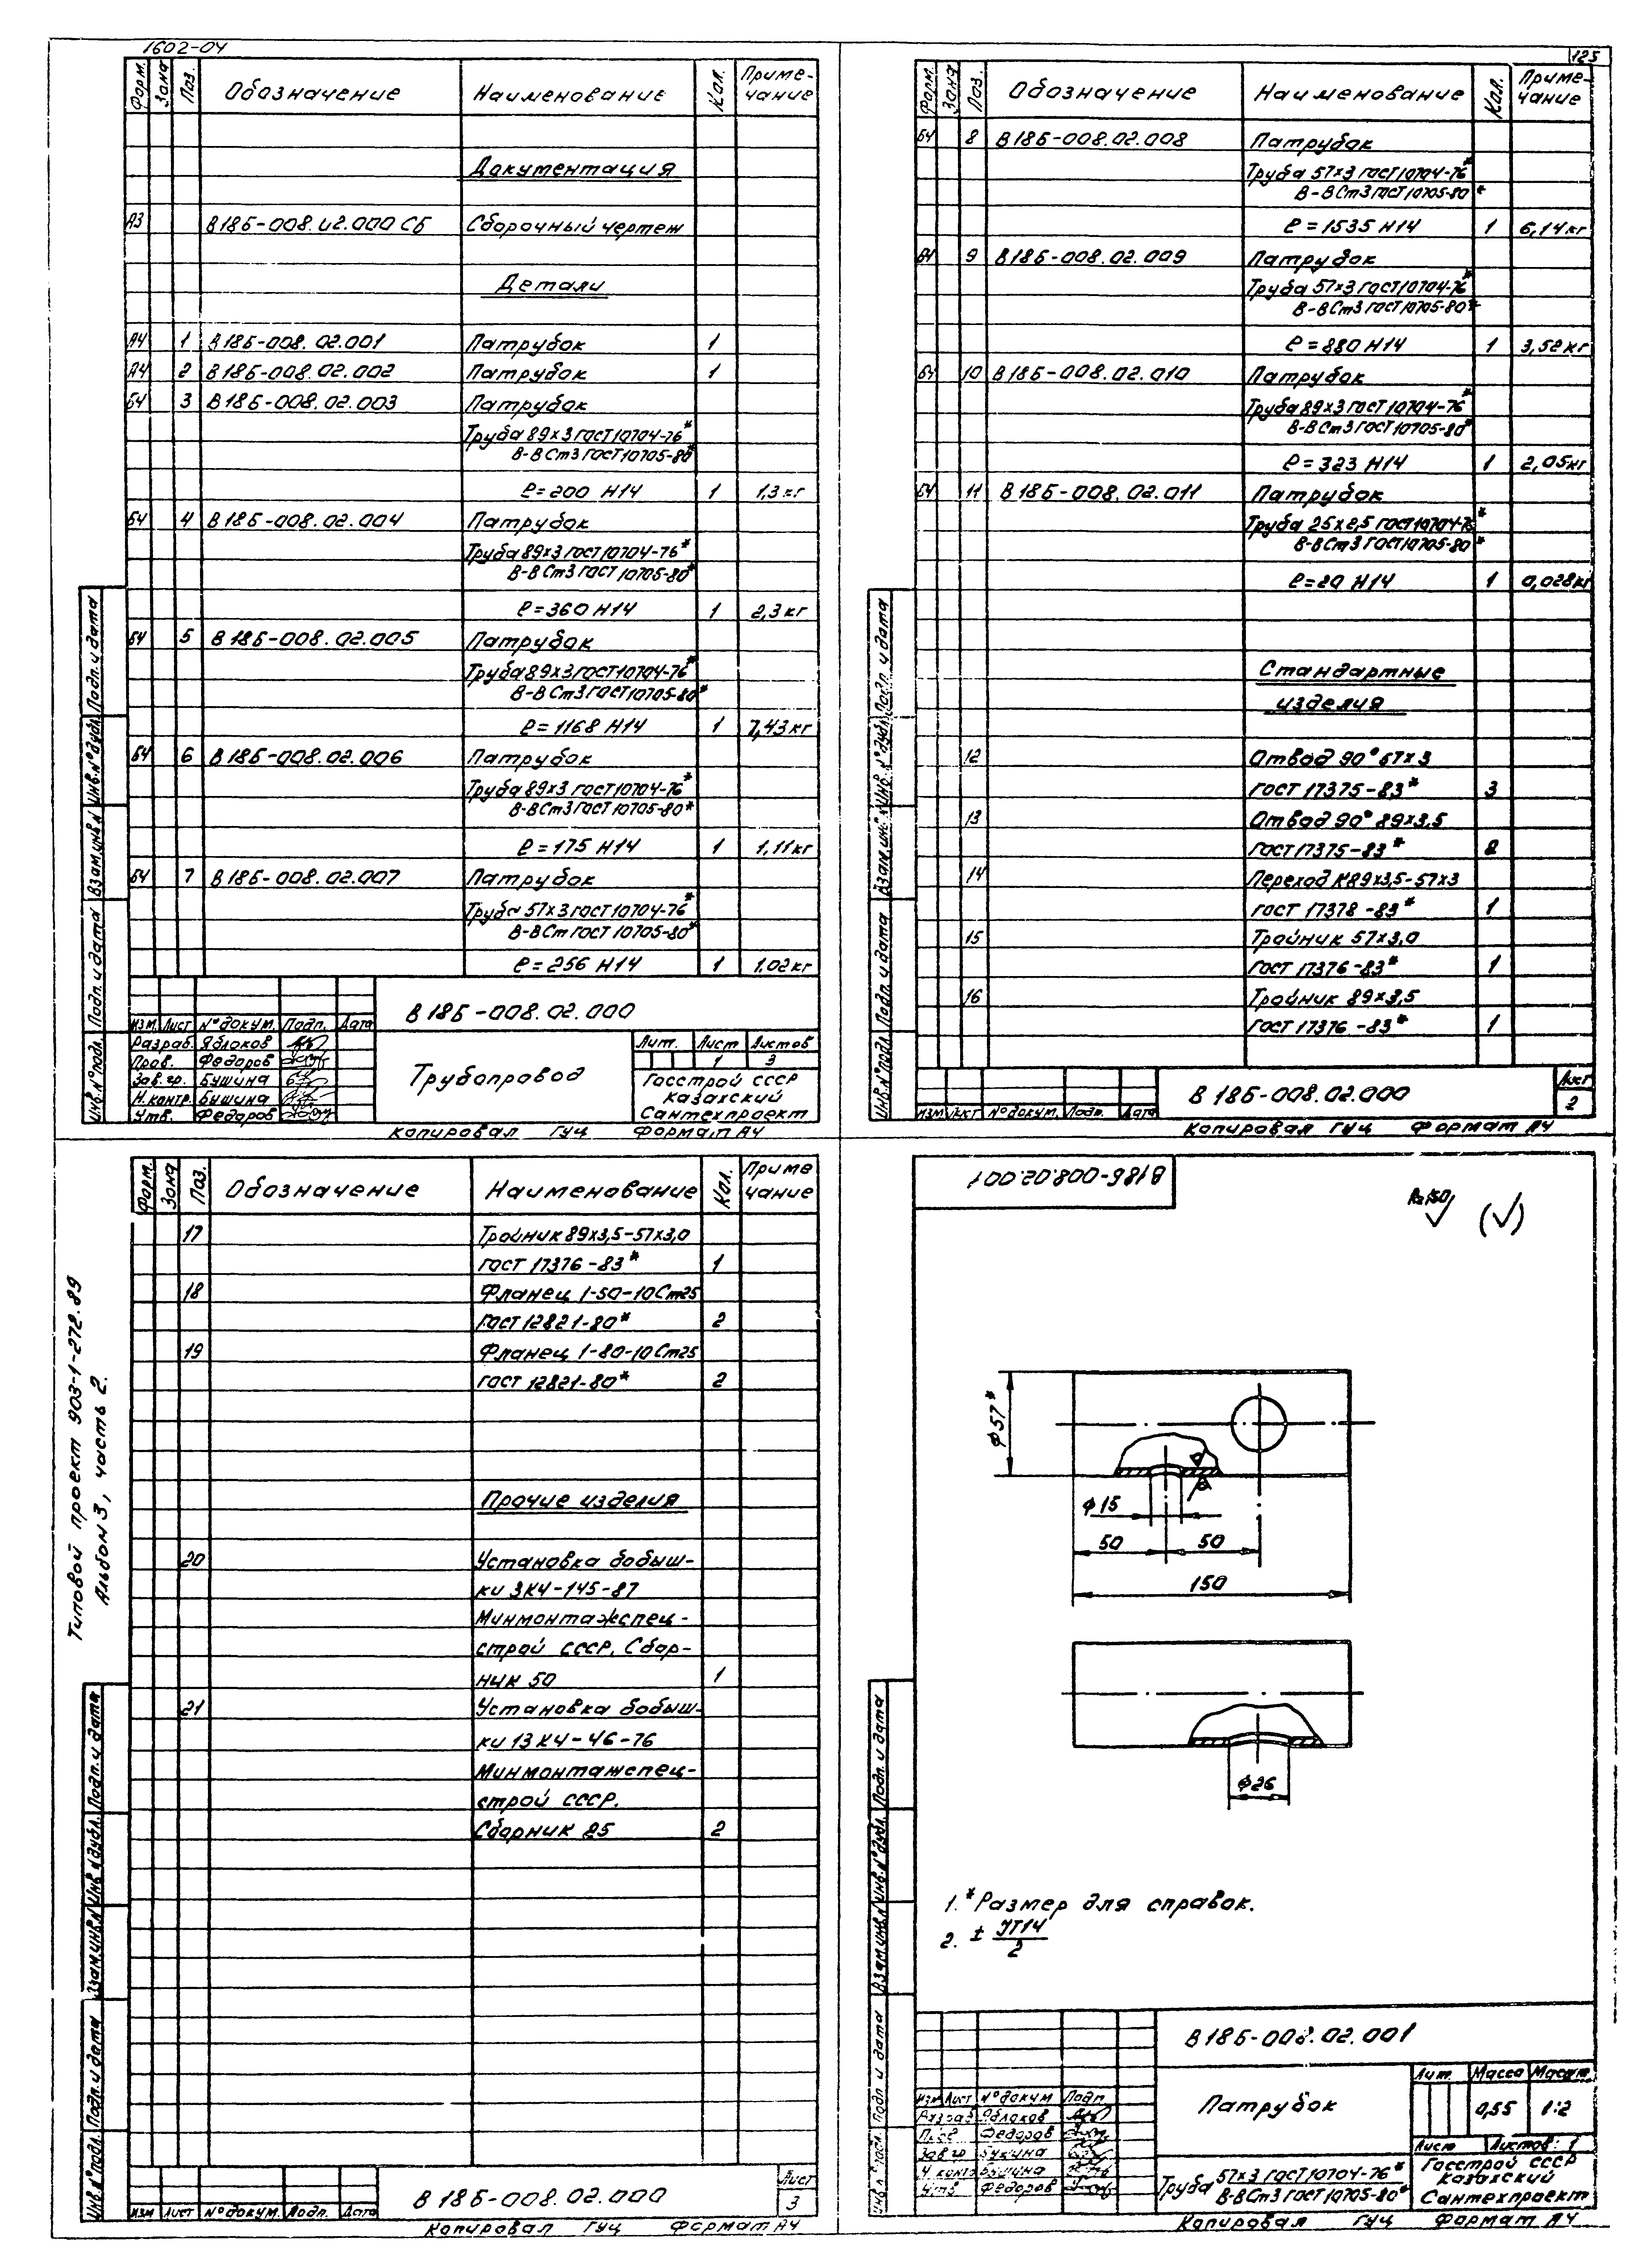 1602-04
125
Форм. Зона Поз. Обозначение Наименование Кол. Примечание
Документация
А3 В186-008.02.000 СБ Сборочный чертеж
Детали
А4 1 В186-008.02.001 Патрубок 1
А4 2 В186-008.02.002 Патрубок 1
Б4 3 В186-008.02.003 Патрубок
Труба 89х3 ГОСТ 10704-76*
В-ВСт3 ГОСТ 10705-80*
ℓ=200 Н14 1 1,3 кг
Б4 4 В186-008.02.004 Патрубок
Труба 89х3 ГОСТ 10704-76*
В-ВСт3 ГОСТ 10705-80*
ℓ=360 Н14 1 2,3 кг
Б4 5 В186-008.02.005 Патрубок
Труба 89х3 ГОСТ 10704-76*
В-ВСт3 ГОСТ 10705-80*
ℓ=1168 Н14 1 7,43 кг
Б4 6 В186-008.02.006 Патрубок
Труба 89х3 ГОСТ 10704-76*
В-ВСт3 ГОСТ 10705-80*
ℓ=175 Н14 1 1,11 кг
Б4 7 В186-008.02.007 Патрубок
Труба 57х3 ГОСТ 10704-76*
В-ВСт ГОСТ 10705-80*
ℓ=256 Н14 1 1.02 кг
Инв.№подл. Подп. и дата Взам.инв.№ Инв.№дубл. Подп. и дата
В186-008.02.000
Изм. Лист №докум. Подп. Дата
Разраб. Яблоков
Пров. Федоров
Зав.гр. Бушина
Н.контр. Бушина
Утв. Федоров
Трубопровод
Лит. Лист Листов
1 3
Госстрой СССР
Казахский
Сантехпроект
Копировал ГУЦ Формат А4
Форм. Зона Поз. Обозначение Наименование Кол. Примечание
Б4 8 В186-008.02.008 Патрубок
Труба 57х3 ГОСТ 10704-76*
В-ВСт3 ГОСТ 10705-80*
ℓ=1535 Н14 1 6,14 кг
Б4 9 В186-008.02.009 Патрубок
Труба 57х3 ГОСТ 10704-76*
В-ВСт3 ГОСТ 10705-80*
ℓ=880 Н14 1 3,52 кг
Б4 10 В186-008.02.010 Патрубок
Труба 89х3 ГОСТ 10704-76*
В-ВСт3 ГОСТ 10705-80*
ℓ=323 Н14 1 2,05 кг
Б4 11 В186-008.02.011 Патрубок
Труба 25х2,5 ГОСТ 10704-76*
В-ВСт3 ГОСТ 10705-80*
ℓ=20 Н14 1 0,028 кг
Стандартные
изделия
12 Отвод 90° 57х3
ГОСТ 17375-83* 3
13 Отвод 90° 89х3,5
ГОСТ 17375-83* 2
14 Переход К89х3,5-57х3
ГОСТ 17378-83* 1
15 Тройник 57х3,0
ГОСТ 17376-83* 1
16 Тройник 89х3,5
ГОСТ 17376-83* 1
Инв.№подл. Подп. и дата Взам.инв.№ Инв.№дубл. Подп. и дата
Изм Лист №докум. Подп. Дата
В186-008.02.000
Лист
2
Копировал ГУЦ Формат А4
Типовой проект 903-1-272.89
Альбом 3, часть 2.
Форм. Зона Поз. Обозначение Наименование Кол. Примечание
17 Тройник 89х3,5-57х3,0
ГОСТ 17376-83* 1
18 Фланец 1-50-10 Ст25
ГОСТ 12821-80* 2
19 Фланец 1-80-10 Ст25
ГОСТ 12821-80* 2
Прочие изделия
20 Установка бобыш-
ки 3К4-145-87
Минмонтажспец-
строй СССР. Сбор-
ник 50 1
21 Установка бобыш-
ки 13К4-46-76
Минмонтажспец-
строй СССР.
Сборник 25 2
Инв.№подл. Подп. и дата Взам.инв.№ Инв.№дубл. Подп. и дата
Изм Лист №докум. Подп. Дата
В186-008.02.000
Лист
3
Копировал ГУЦ Формат А4
В186-008.02.001
(√)
ф57*
ф15
50 50
150
ф26
1. *Размер для справок.
2. ± JT14/2
Инв.№подл. Подп. и дата Взам.инв.№ Инв.№дубл. Подп. и дата
В186-008.02.001
Изм Лист №докум Подп.
Разраб Яблоков
Пров Федоров
Зав гр Бушина
Н.контр Бушина
Утв Федоров
Патрубок
Лит. Масса Масшт.
0,55 1:2
Лист Листов: 1
Труба 57х3 ГОСТ 10704-76*
В-ВСт3 ГОСТ 10705-80*
Госстрой СССР
Казахский
Сантехпроект
Копировал ГУЦ Формат А4